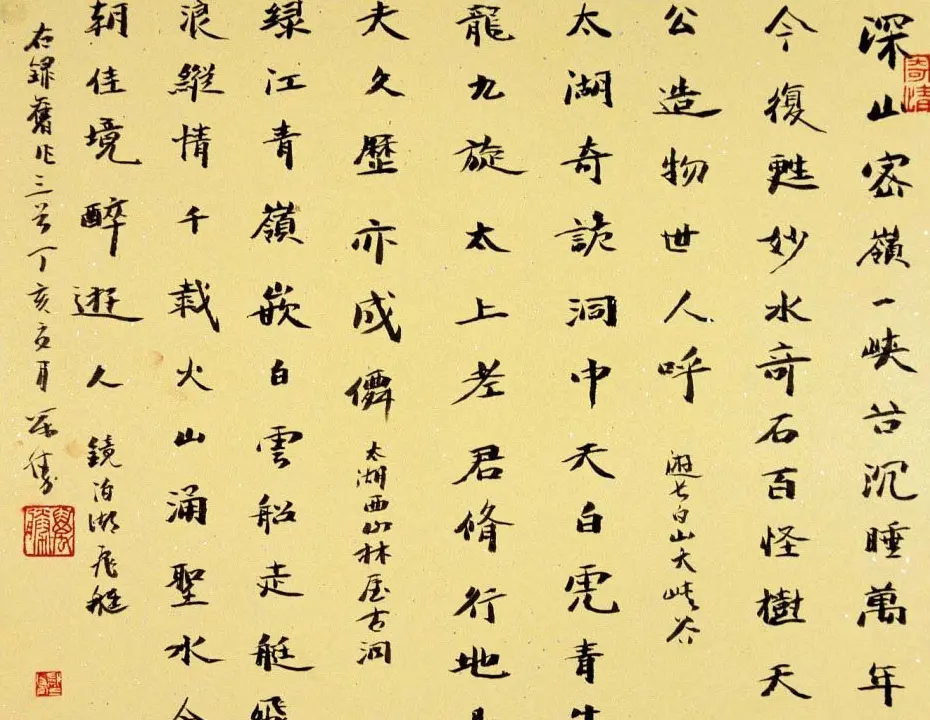 深山密嶺一峽谷沉睡萬年
今復甦妙水奇石百怪樹天
公造物世人呼 遊長白山大峽谷
太湖奇詭洞中天白虎青
龍九旋太上老君脩行地
夫久歷亦成僊 太湖西山林屋古洞
綠江青嶺嵌白雲船走艇飛
浪縱情千載火山涌聖水今
朝佳境醉遊人 鏡泊湖飛艇
右錄舊作三首丁亥月